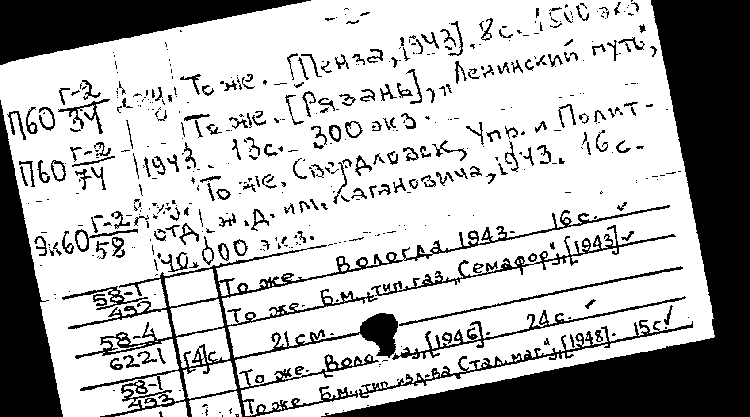 - 2 -
П60 Г-2/34 То же. [Пенза, 1943]. 8 с. 1500 экз.
П60 Г-2/74 То же. [Рязань], „Ленинский путь",
1943. 13 с. 300 экз.
Эк60 Г-2/58 То же. Свердловск, Упр. и Полит-
отд. ж.д. им. Кагановича, 1943. 16 с.
40.000 экз.
58-1/492 То же. Вологда. 1943. 16 с. ✓
58-4/6221 [4] с. То же. Б.м., „тип. газ. „Семафор", [1943] ✓
21 см.
58-1/493 То же. [1946]. 24 с. ✓
То же. Б.м., „тип. изд-ва „Стал. маг.", [1948]. 15 с ✓